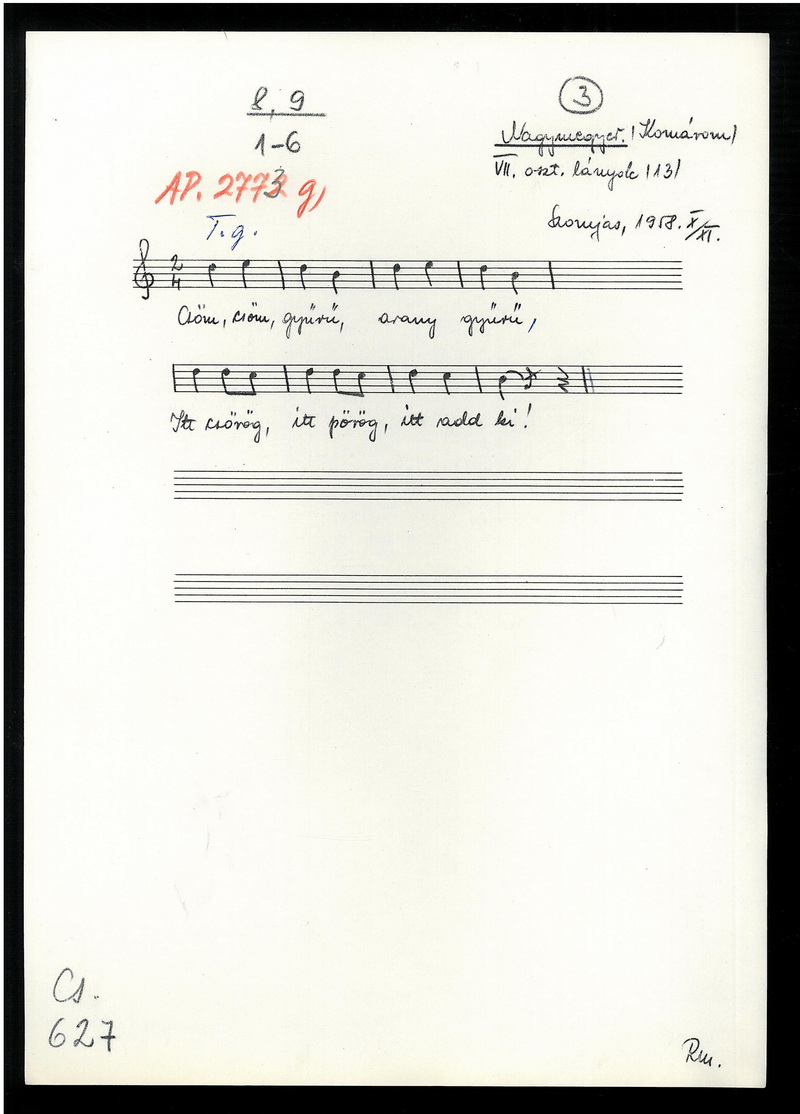 8, 9
1-6
3
Nagymegyer. (Komárom)
AP. 2773 g)
VII. oszt. lányok (13)
T.g.
Szomjas, 1958. X/XI.
2
4
Csöm, csöm, gyűrű, arany gyűrű,
Itt csörög, itt pörög, itt add ki!
Cs.
627
Rm.